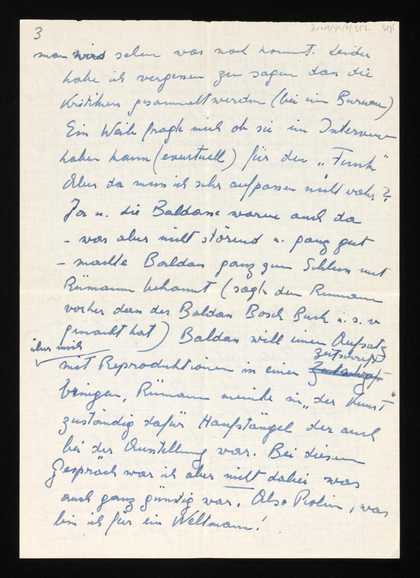 3
man wird sehen was noch kommt. Leider
habe ich vergessen zu sagen das die
Kritiken gesammelt werden (bei ein Bureau)
Ein Weib fragte mich ob sie ein Interview
haben kann (eventuell) für den „Funk"
Aber da muss ich sehr aufpassen nicht wahr?
Jos u. die Baldass waren auch da
– war aber nicht störend u. ganz gut
– machte Baldass ganz zum Schluss mit
Rümann bekannt (sagte dem Rümann
vorher dass der Baldass Bosch Buch u.s.w
gemacht hat) Baldass will einen Aufsatz
über mich
Zeitschrift
mit Reproduktionen in einer
bringen, Rümann meinte in „der Kunst"
zuständig dafür Hanfstängel der auch
bei der Ausstellung war. Bei diesem
Gespräch war ich aber nicht dabei was
auch ganz günstig war. Also Robin, was
bin ich für ein Weltmann!